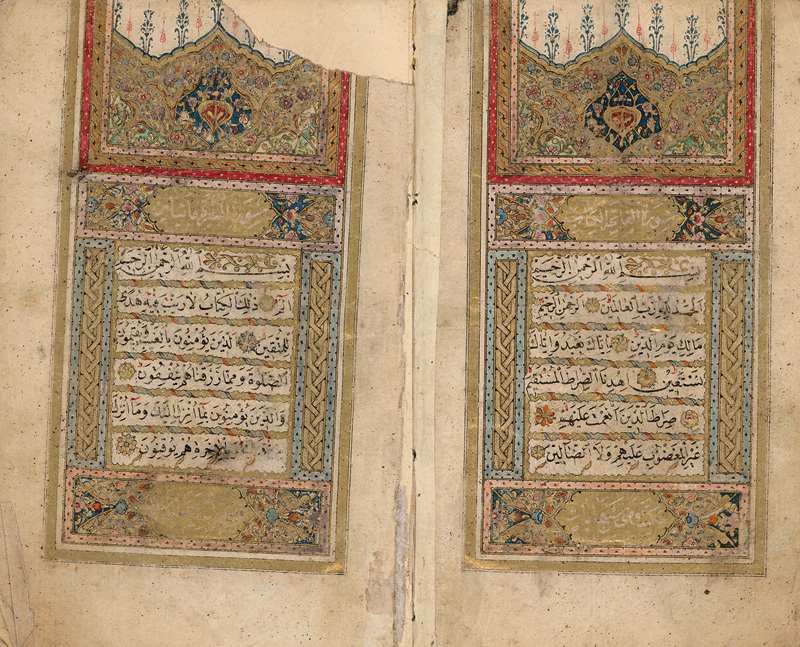 سورة الفاتحة
بِسْمِ اللهِ الرَّحْمٰنِ الرَّحِيمِ
اَلْحَمْدُ لِلّٰهِ رَبِّ الْعَالَمِينَ الرَّحْمٰنِ الرَّحِيمِ
مَالِكِ يَوْمِ الدِّينِ اِيَّاكَ نَعْبُدُ وَاِيَّاكَ
نَسْتَعِينُ اِهْدِنَا الصِّرَاطَ الْمُسْتَقِيمَ
صِرَاطَ الَّذِينَ اَنْعَمْتَ عَلَيْهِمْ
غَيْرِ الْمَغْضُوبِ عَلَيْهِمْ وَلَا الضَّالِّينَ
سورة البقرة
بِسْمِ اللهِ الرَّحْمٰنِ الرَّحِيمِ
الٓمٓ ذٰلِكَ الْكِتَابُ لَا رَيْبَ فِيهِ هُدًى
لِلْمُتَّقِينَ الَّذِينَ يُؤْمِنُونَ بِالْغَيْبِ وَيُقِيمُونَ
الصَّلٰوةَ وَمِمَّا رَزَقْنَاهُمْ يُنْفِقُونَ
وَالَّذِينَ يُؤْمِنُونَ بِمَا اُنْزِلَ اِلَيْكَ وَمَا اُنْزِلَ
وَبِالْاٰخِرَةِ هُمْ يُوقِنُونَ